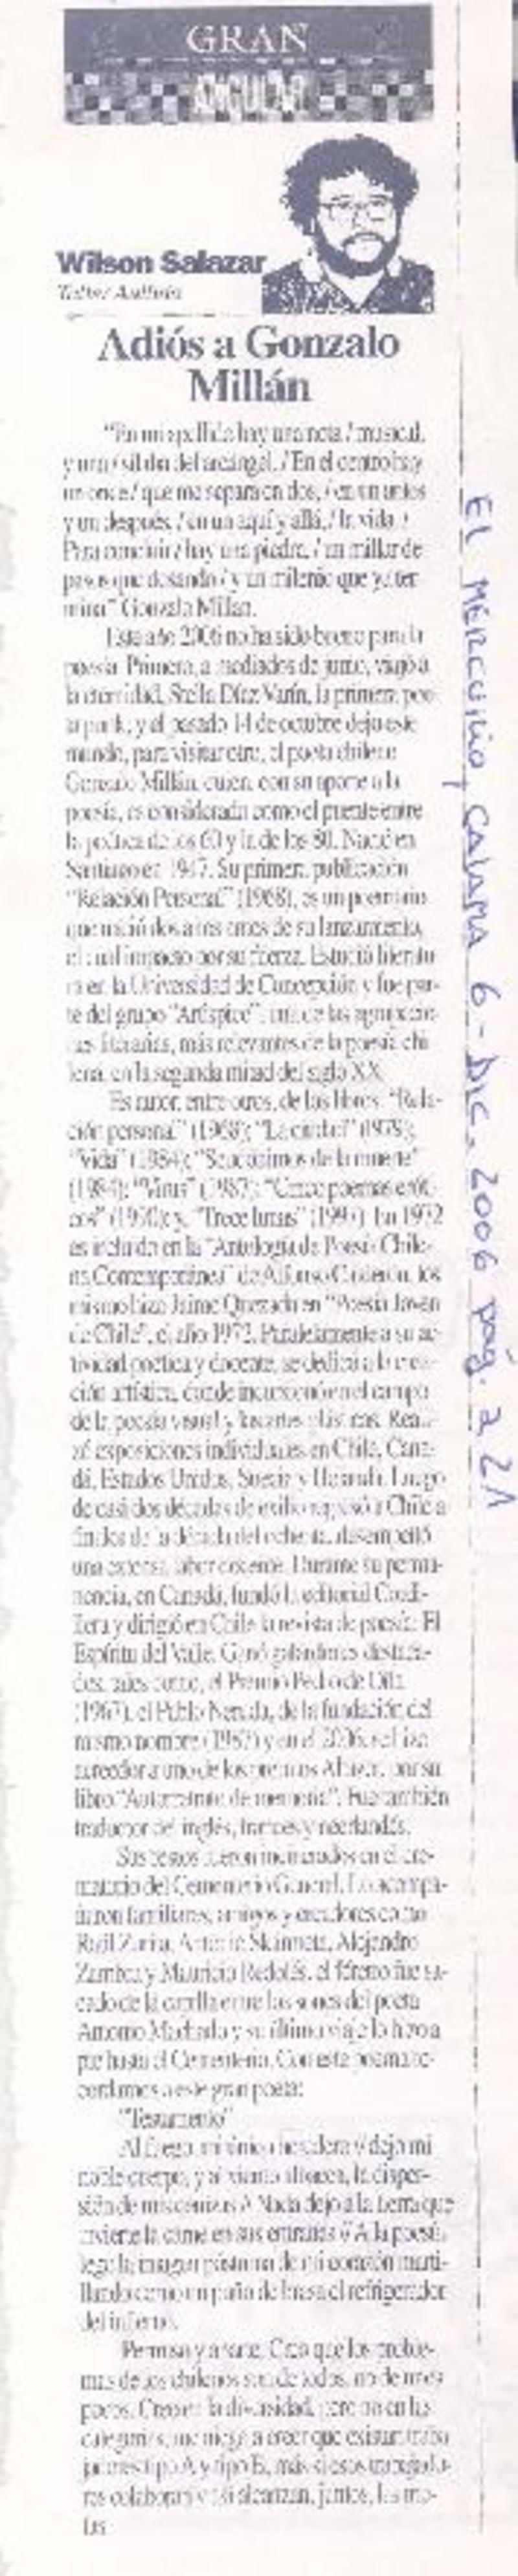 GRAN
ANGULAR
Wilson Salazar
Taller Aullido
Adiós a Gonzalo
Millán
"En mi apellido hay una nota / musical,
y una / sílaba del arcángel. / En el centro hay
un once / que me separa en dos, / en un antes
y un después, / en un aquí y allá, / la vida. /
Para concluir / hay una piedra, / un millar de
pasos que dosando / y un milenio que ya ter
mina" Gonzalo Millán.
Este año 2006 no ha sido bueno para la
poesía. Primero, a mediados de junio, viajó a
la eternidad, Stella Díaz Varín, la primera poe-
ta punk, y el pasado 14 de octubre dejó este
mundo, para visitar otro, el poeta chileno
Gonzalo Millán, quien, con su aporte a la
poesía, es considerado como el puente entre
la poética de los 60 y la de los 80. Nació en
Santiago en 1947. Su primera publicación
"Relación Personal" (1968), es un poemario
que nació dos años antes de su lanzamiento,
el cual impactó por su fuerza. Estudió literatu-
ra en la Universidad de Concepción y fue par-
te del grupo "Arúspice", una de las agrupacio-
nes literarias, más relevantes de la poesía chi
lena, en la segunda mitad del siglo XX.
Es autor, entre otros, de los libros: "Rela-
ción personal" (1968); "La ciudad" (1979);
"Vida" (1984); "Seudónimos de la muerte"
(1984); "Virus" (1987); "Cinco poemas eróti-
cos" (1990); y, "Trece lunas" (1997). En 1972
es incluido en la "Antología de Poesía Chile-
na Contemporánea" de Alfonso Calderón, los
mismo hizo Jaime Quezada en "Poesía Joven
de Chile", el año 1972. Paralelamente a su ac-
tividad poética y docente, se dedicó a la crea-
ción artística, donde incursionó en el campo
de la poesía visual y las artes plásticas. Reali-
zó exposiciones individuales en Chile, Cana-
dá, Estados Unidos, Suecia y Holanda. Luego
de casi dos décadas de exilio regresó a Chile a
fines de la década del ochenta, desempeñó
una extensa labor docente. Durante su perma-
nencia, en Canadá, fundó la editorial Cordi-
llera y dirigió en Chile la revista de poesía: El
Espíritu del Valle. Ganó galardones destaca-
dos, tales como, el Premio Pedro de Oña
(1967), el Pablo Neruda, de la fundación del
mismo nombre (1987) y en el 2006, se hizo
acreedor a uno de los premios Altazor, por su
libro "Autorretrato de memoria". Fue también
traductor del inglés, francés y neerlandés.
Sus restos fueron incinerados en el cre-
matorio del Cementerio General. Lo acompa-
ñaron familiares, amigos y creadores como
Raúl Zurita, Antonio Skármeta, Alejandro
Zambra y Mauricio Redolés, el féretro fue sa-
cado de la capilla entre los sones del poeta
Antonio Machado y su último viaje lo hizo a
pie hasta el Cementerio. Con este poema re-
cordamos a este gran poeta:
"Testamento"
Al fuego, mi único heredero // dejo mi
noble cuerpo, y al viento albacea, la disper-
sión de mis cenizas // Nada dejo a la tierra que
invierte la carne en sus entrañas // A la poesía
lego la imagen póstuma de mi corazón marti-
llando como un puño de brasa el refrigerador
del infierno.
Permiso y aparte. Creo que los proble-
mas de los chilenos son de todos, no de unos
pocos. Creo en la diversidad, pero no en las
categorías, me niego a creer que existan traba
jadores tipo A y tipo B, más si esos trabajado-
res colaboran y así alcanzan, juntos, las me-
tas
EL MERCURIO, CALAMA 6-DIC. 2006 pág. a 21